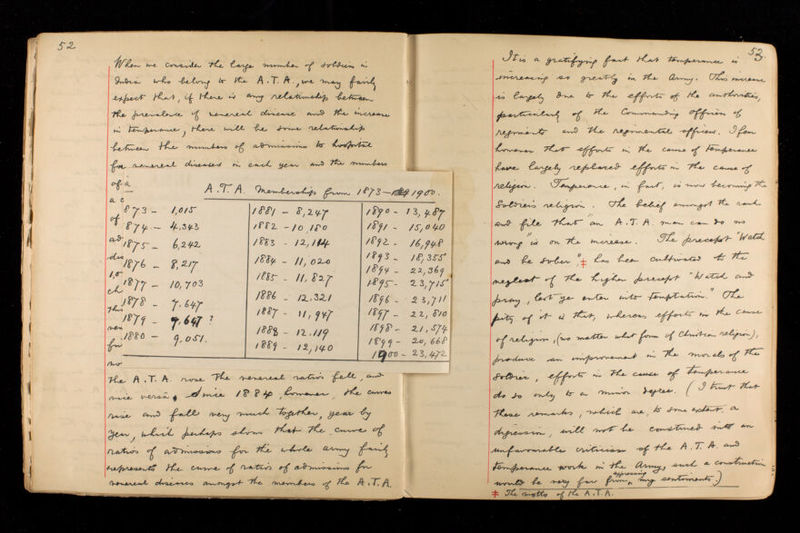 52
When we consider the large number of soldiers in
India who belong to the A.T.A., we may fairly
expect that, if there is any relationship between
the prevalence of venereal disease and the increase
in temperance, there will be some relationship
between the numbers of admissions to hospital
for venereal diseases in each year and the numbers
of
A.T.A. Membership from 1873-1900.
1873 - 1,015
1874 - 4,343
1875 - 6,242
1876 - 8,217
1877 - 10,703
1878 - 7,647
1879 - 7,647 ?
1880 - 9,051
1881 - 8,247
1882 - 10,180
1883 - 12,114
1884 - 11,020
1885 - 11,827
1886 - 12,321
1887 - 11,947
1888 - 12,119
1889 - 12,140
1890 - 13,487
1891 - 15,040
1892 - 16,948
1893 - 18,355
1894 - 22,369
1895 - 23,715
1896 - 23,711
1897 - 22,810
1898 - 21,574
1899 - 20,668
1900 - 23,472
the A.T.A. rose the venereal ratios fell, and
vice versâ. Since 1884, however, the curves
rise and fall very much together, year by
year, which perhaps shows that the curve of
ratios of admissions for the whole army fairly
represents the curve of ratios of admissions for
venereal diseases amongst the members of the A.T.A.
53.
It is a gratifying fact that temperance is
increasing so greatly in the Army. This increase
is largely due to the efforts of the authorities,
particularly of the Commanding Officers of
regiments and the regimental officers. I fear
however that efforts in the cause of temperance
have largely replaced efforts in the cause of
religion. Temperance, in fact, is now becoming the
Soldier's religion. The belief amongst the rank
and file that "an A.T.A. man can do no
wrong" is on the increase. The precept "Watch
and be sober", ‡ has been cultivated to the
neglect of the higher precept "Watch and
pray, lest ye enter into temptation." The
pity of it is that, whereas efforts in the cause
of religion, (no matter what form of Christian religion),
produce an improvement in the morals of the
Soldier, efforts in the cause of temperance
do so only to a minor degree. (I trust that
these remarks, which are, to some extent, a
digression, will not be construed into an
unfavourable criticism of the A.T.A. and
temperance work in the Army, such a construction
would be very far from expressing my sentiments.)
‡ The motto of the A.T.A.